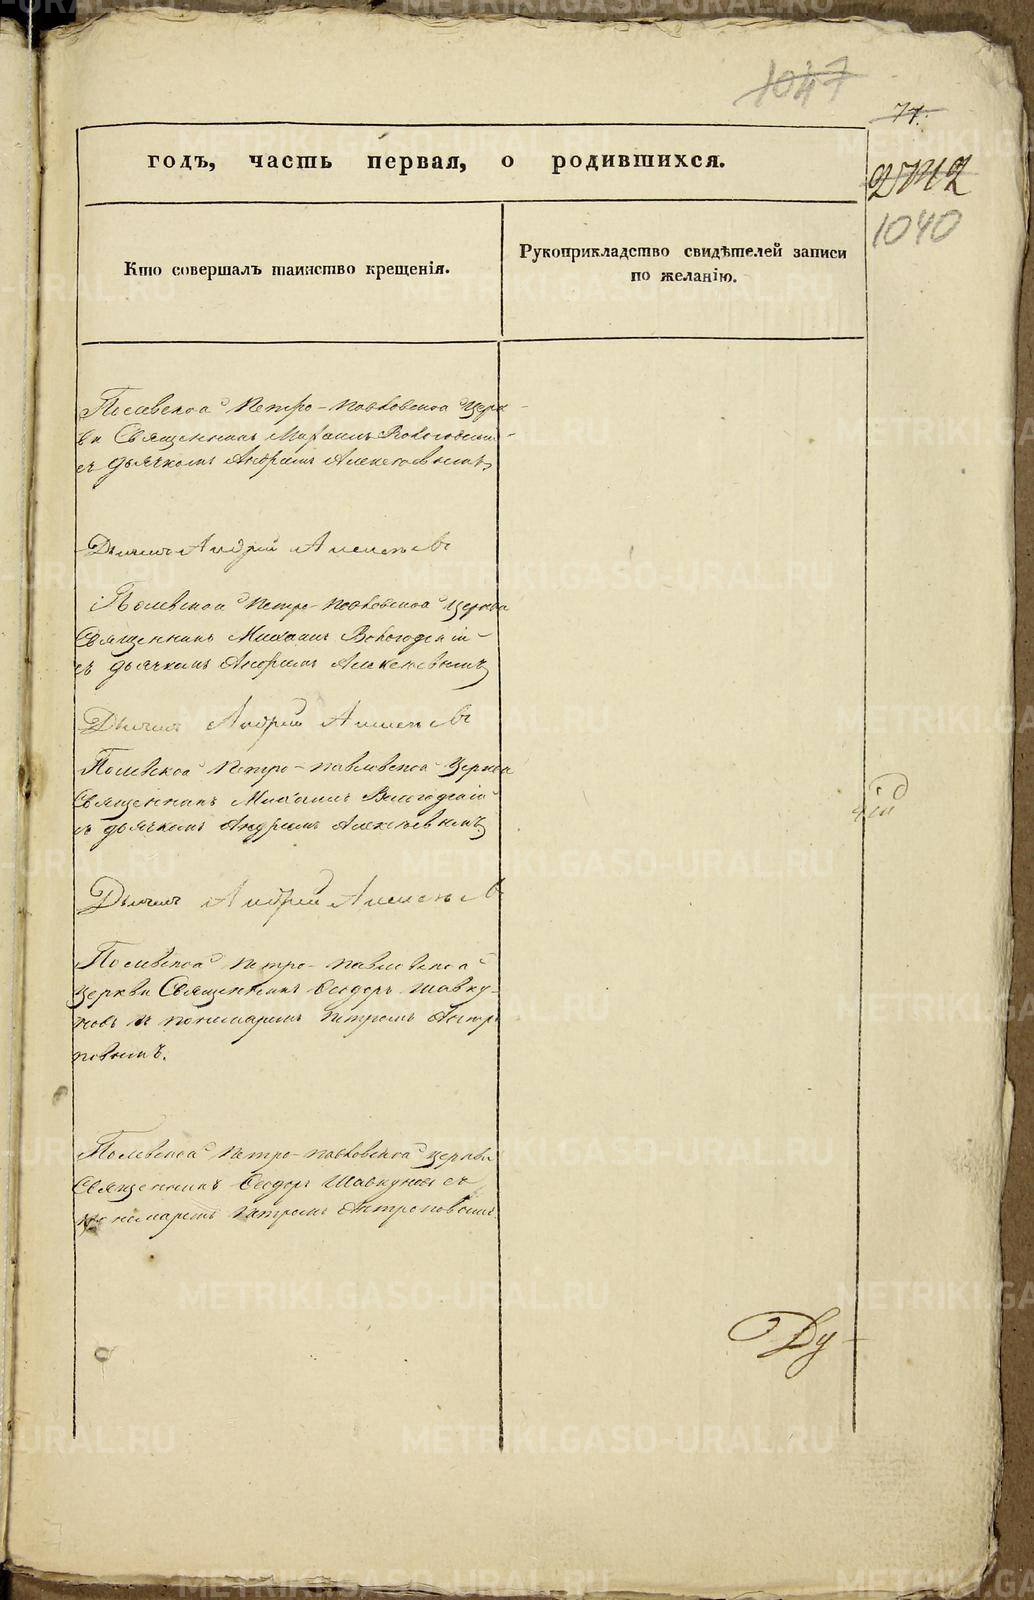 1047
77.
годъ, часть первая, о родившихся.
1040
Кто совершалъ таинство крещенія.
Рукоприкладство свидѣтелей записи
по желанію.
Полевской Петро-Павловской Церк-
ви Священникъ Михаилъ Вологодскій
съ дьячкомъ Андреемъ Алексѣевымъ
Дьячекъ Андрей Алексѣевъ
Полевской Петро-Павловской церкви
Священникъ Михаилъ Вологодскій
съ дьячкомъ Андреемъ Алексѣевымъ
Дьячекъ Андрей Алексѣевъ
Полевской Петро-Павловской Церкви
Священникъ Михаилъ Вологодскій
съ дьячкомъ Андреемъ Алексѣевымъ
Дьячекъ Андрей Алексѣевъ
Полевской Петро-Павловской
церкви Священникъ Ѳеодоръ Шавку-
новъ съ пономаремъ Петромъ Антро-
повымъ.
Полевской Петро-Павловской церкви
Священникъ Ѳеодоръ Шавкуновъ съ
пономаремъ Петромъ Антроповымъ.
Ду-
METRIKI.GASO-URAL.RU